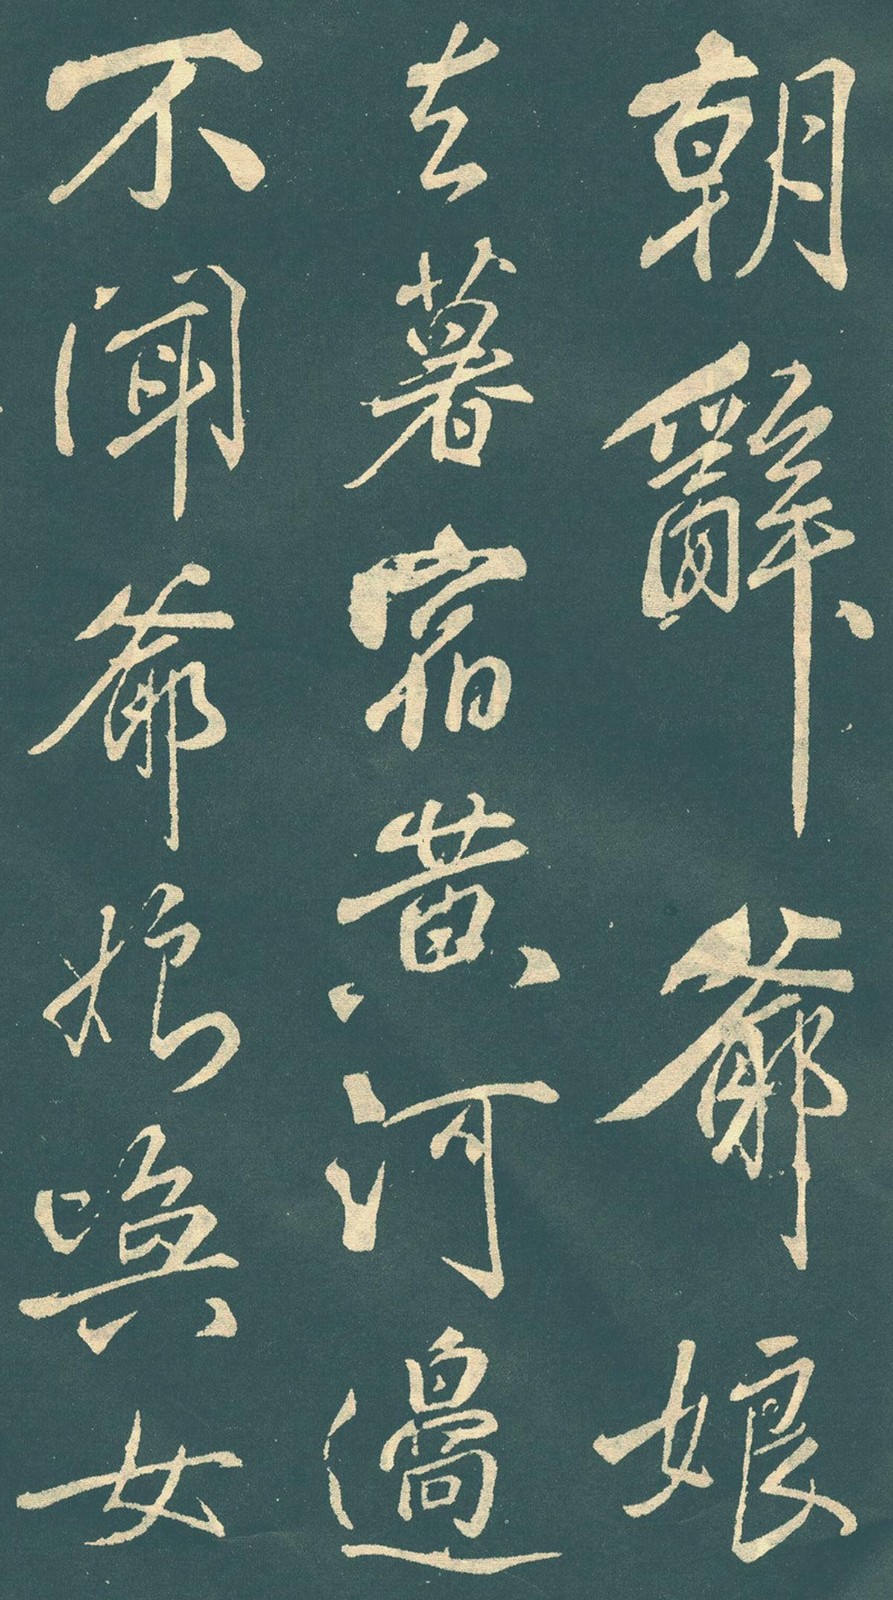 朝辭爺娘
去暮宿黃河邊
不聞爺娘喚女